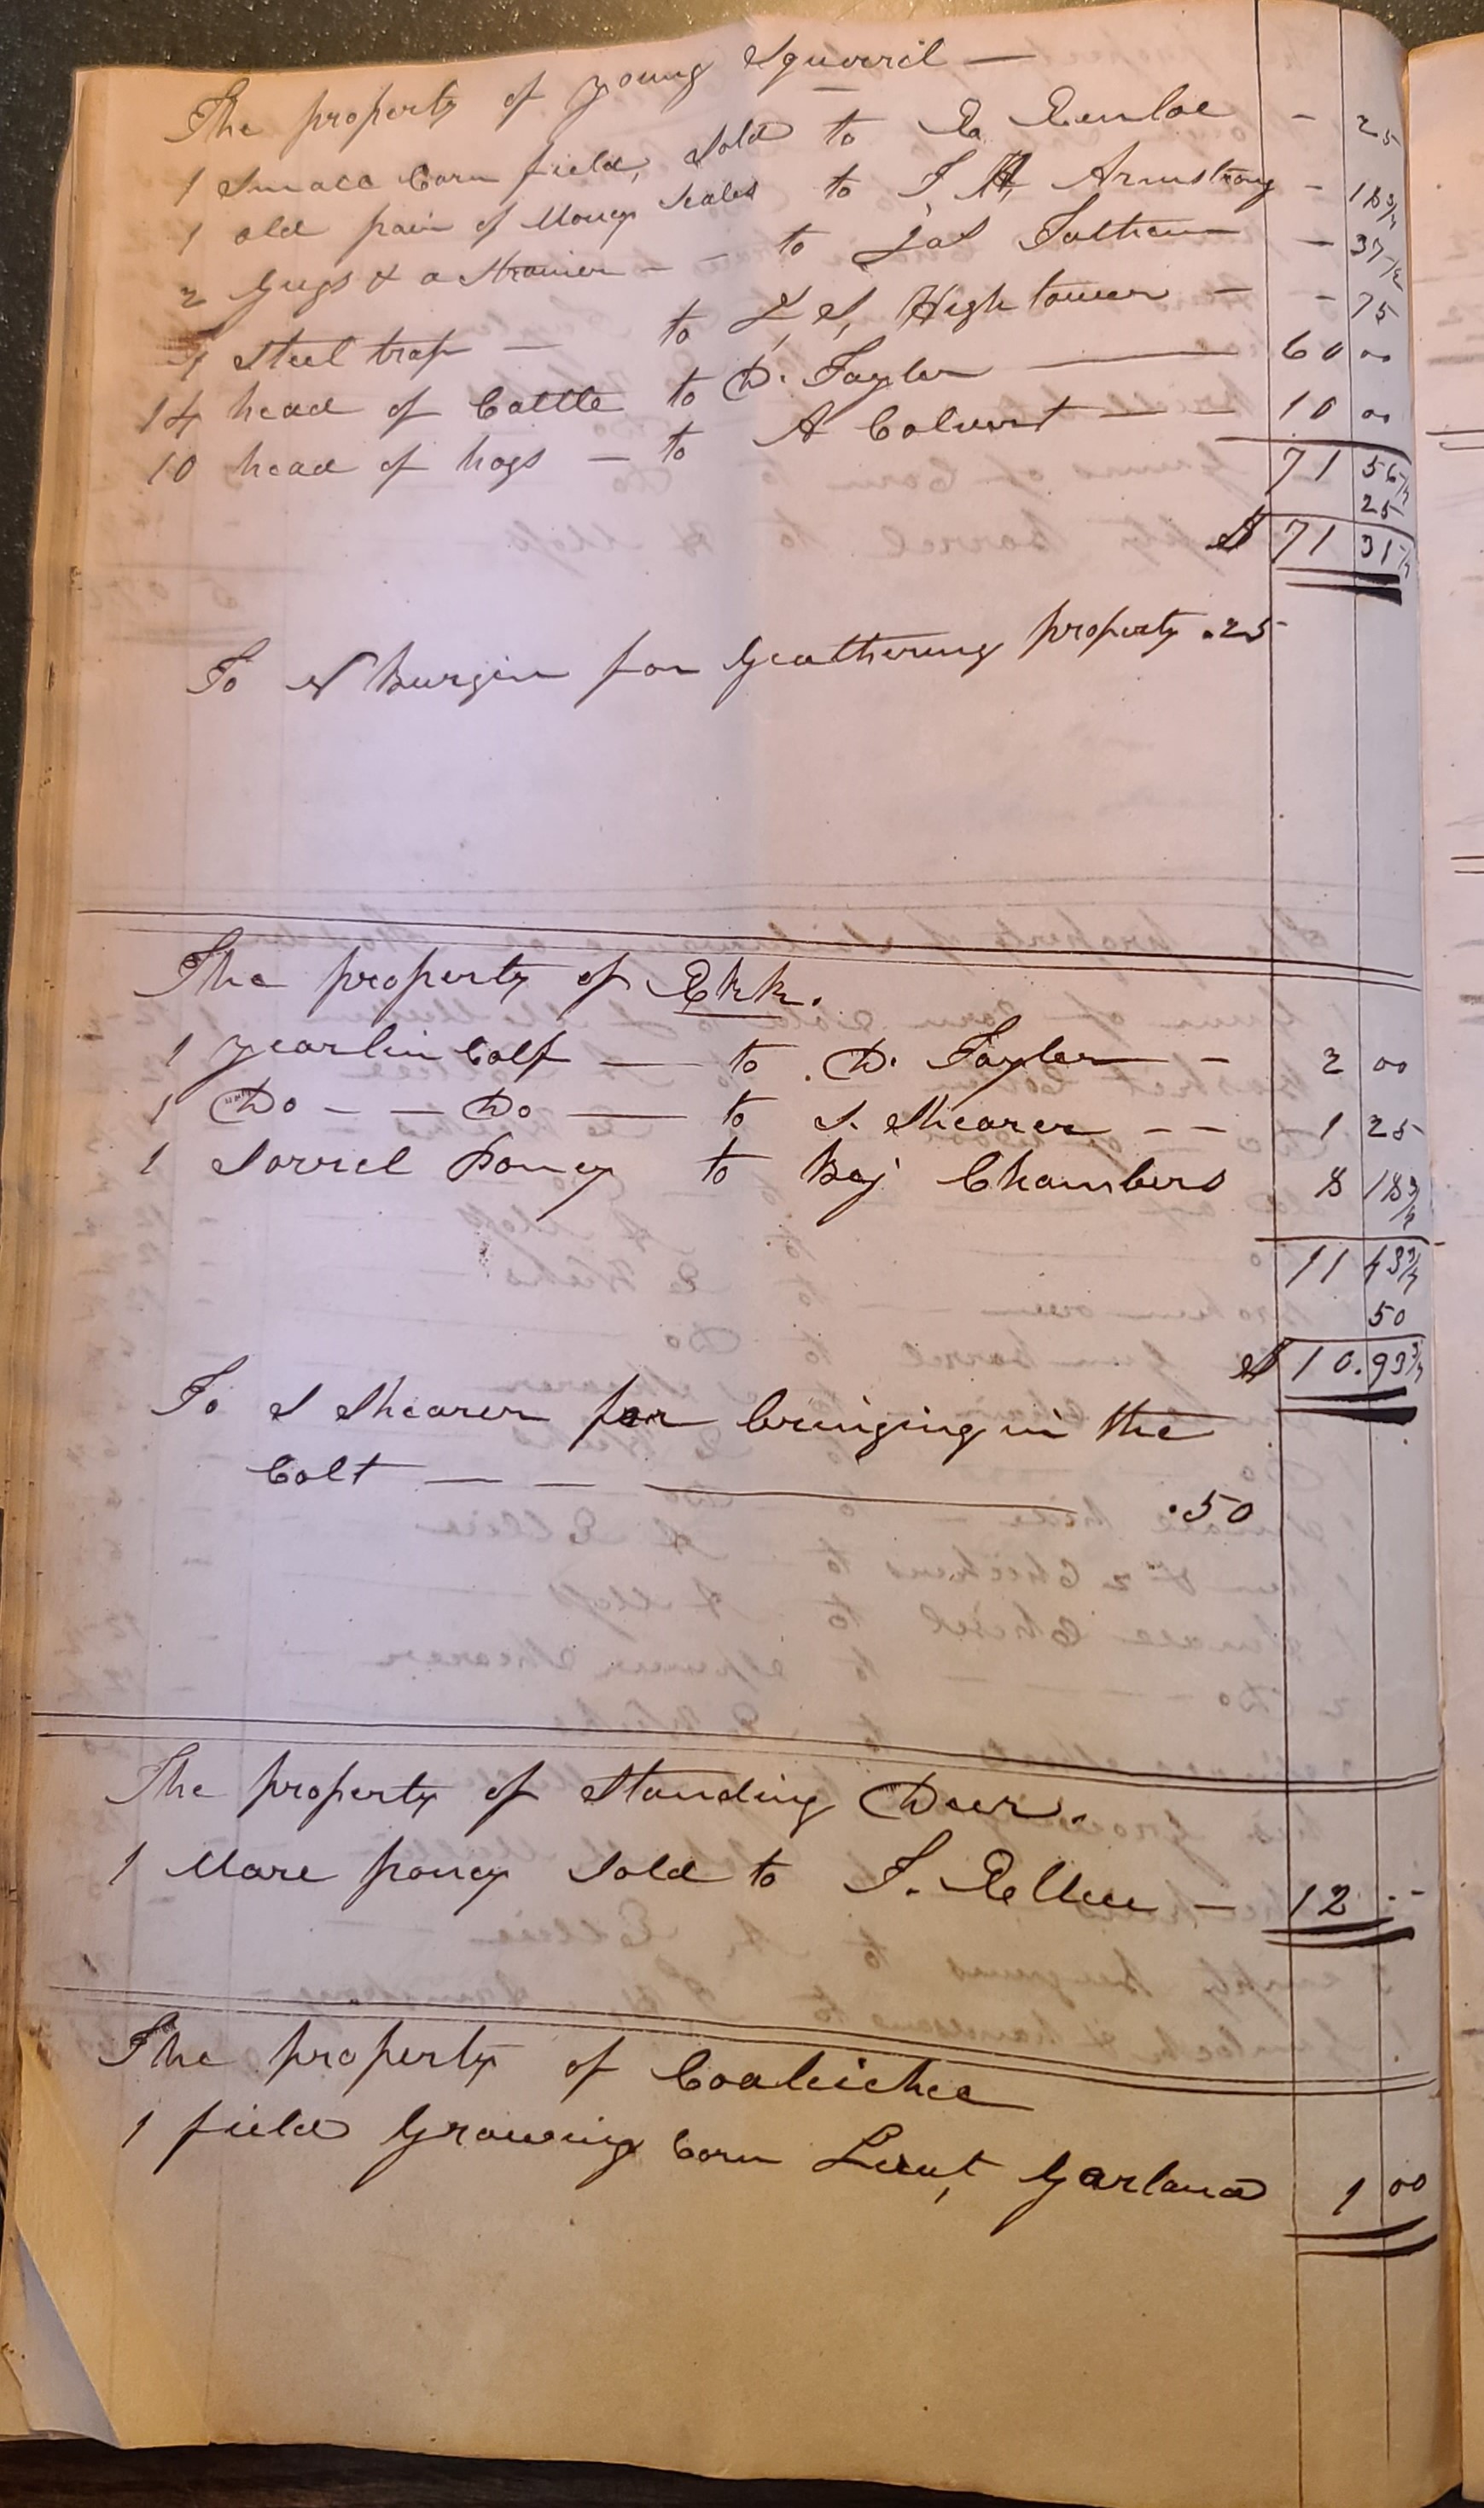 The property of young Squirril —
1 Small Corn field, sold to E. Enloe - 25
1 old pair of Money scales to T. H. Armstrong - 18 3/4
2 Jugs & a Strainer - - to Jas - 37 1/2
1 Steel trap — to J, S, Hightower - - 75
14 head of Cattle to D. Tayler — 60 00
10 head of hogs — to A Colvert — — 10 00
71 56 1/4
25
$ 71 31 1/4
To N Burgin for Geathering property .25
The property of Ekk.
1 yearlin Calf — to D. Tayler — - 2 00
1 Do - — Do — to S. Shearer - - 1 25
1 Sorrel Poney to Boj Chambers 8 18 3/4
11 43 3/4
50
$ 10.93 3/4
To S Shearer for bringing in the
Colt — — — .50
The property of Standing Deer.
1 Mare poney sold to J. — 12 --
The property of
1 field Growing Corn Lieut, Garland 1 00